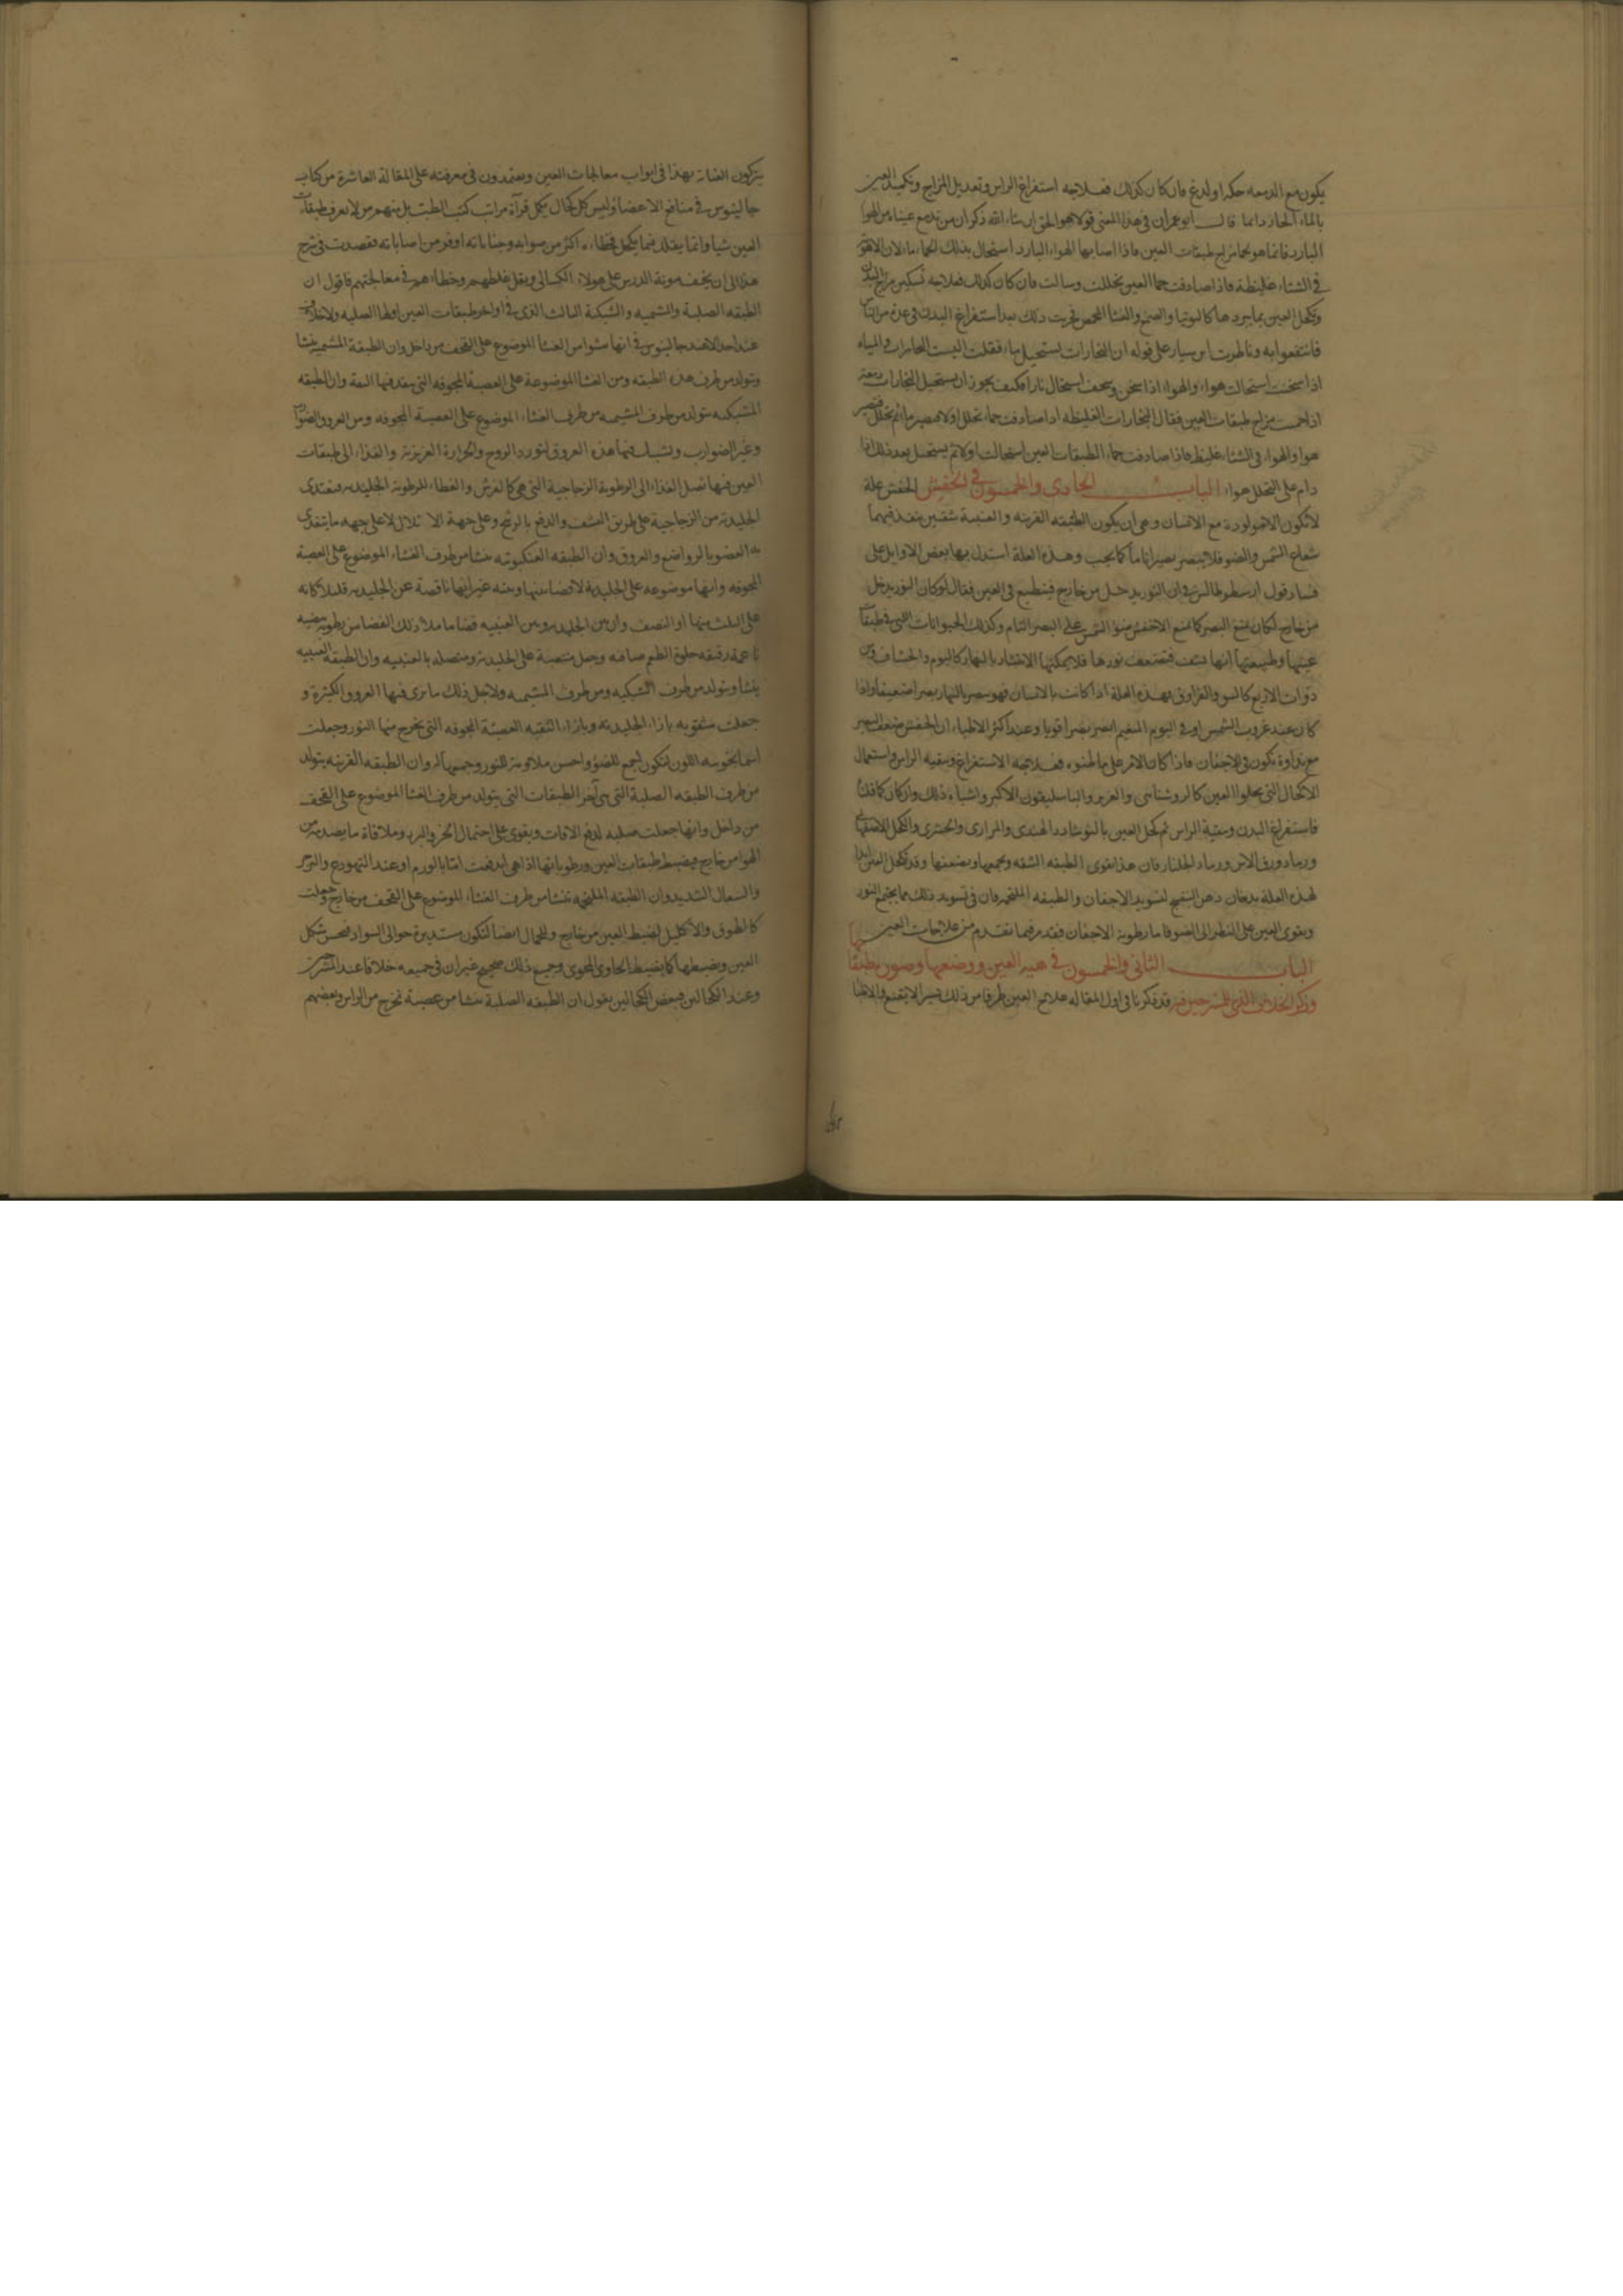 يكون مع الدمعه حكه او لدغ فان كان كذلك فعلاجه استفراغ الراس وتعديل المزاج وتكميد العين
بالماء الحار دايما قال ابو عمران في هذا المعنى قولا هو الحق ان شاء الله ذكر ان من تدمع عيناه من الهوا
البارد فانما هو لحما مزاج طبقات العين فاذا اصابها الهواء البارد استحال بذلك الحما ماء لان الاهوية
في الشتاء غليظة فاذا صادفت حما العين تحللت وسالت فان كان كذلك فعلاجه تسكين مزاج البدن
وتكحل العين بما يبردها كالتوتيا والصمغ والنشا المحمص فجربت ذلك بعد استفراغ البدن في عدة من الناس
فانتفعوا به وناظرت ابن سيار على قوله ان البخارات تستحيل ماء فقلت اليست البخارات والمياه
اذا سخنت استحالت هواء والهواء اذا سخن وسخف استحال نارا فكيف يجوز ان يستحيل البخارات دمعه
اذا حميت مزاج طبقات العين فقال البخارات الغليظه اذا صادفت حماء تحلل اولا فيصير ماء ثم تحلل فيصير
هوا والهواء في الشتاء غليظ فاذا صادفت حماء الطبقات العين استحالت اولا ثم يستحيل بعد ذلك اذا
دام على التحلل هواء الباب الحادي والخمسون في الخفش الخفش علة
لا تكون الا مولودة مع الانسان وهي ان يكون الطبقه القرنيه والعنبية شفين ينفذ فيهما
شعاع الشمس والضو فلا يبصر بصيرا تاما كما يجب وهذه العلة استدل بها بعض الاوايل على
فساد قول ارسطوطاليس في ان النور يدخل من خارج فينطبع في العين فقال لو كان النور يدخل
من خارج لكان يمنع البصر كما يمنع الاخفش ضو الشمس على البصر التام وكذلك الحيوانات التي في طبقات
عينها وطبيعتها انها تشف فيضعف نورها فلا يمكنها الانتشار بالنهار كالبوم والخشاف ومن
ذوات الاربع كالسو والفراوق وهذه العلة اذا كانت بالانسان فهو يبصر بالنهار بصرا ضعيفا واذا
كان عند غروب الشمس او في اليوم المغيم ابصر بصرا قويا وعند اكثر الاطباء ان الخفش ضعف البصر
مع نداوة تكون في الاجفان فاذا كان الامر على ما ظنوه فعلاجه الاستفراغ وتنقيه الراس واستعمال
الاكحال التي يحلوا العين كالروشنائي والعزيز والباسليقون الاكبر واشباه ذلك وان كان كما قلنا
فاستفراغ البدن وتنقية الراس ثم كحل العين بالنوشادر الهندي والمراري والحشري والكحل الاصفهاني
ورماد ورق الاس ورماد الجلنار فان هذا يقوى الطبقه الشفه ويجمعها وقد تكحل العين ايضا
لهذه العلة بدخان دهن البنفسج لتسويد الاجفان والطبقه الملتحمه فان في تسويد ذلك مما يجتمع النور
ويقوى العين على النظر الى الضو فاما رطوبة الاجفان فقد مر فيما تقدم من علاجات العين
الباب الثاني والخمسون في هيه العين ووضعها وصور طبقاتها
وذكر الخلاف الذي للمشرحين فيه قد ذكرنا في اول المقاله علاج العين طرفا من ذلك يسيرا لا يقنع والاطبا
يتركون العناية بهذا في ابواب معالجات العين ويعتمدون في معرفته على المقالة العاشرة من كتاب
جالينوس في منافع الاعضا وليس كل كحال يمكن قرآة مراتب كتب الطب بل منهم من لا يعرف طبقات
العين شيا وانما يقلد فيما يكحل فخطاءه اكثر من صوابه وجناياته اوفر من اصاباته فقصدت في شرح
هذا الى ان يخف مونة الدرس على هولاء الكسالى ويقل غلطهم وخطاءهم في معالجتهم فاقول ان
الطبقه الصلبة والمشيميه والشبكية الثالث الذي في اواخر طبقات العين اولها الصلبه ولا خلاف فيه
عند احد لا عند جالينوس في انها منشوا من الغشا الموضوع على القحف من داخل وان الطبقة المشيميه ينشا
ويتولد من طرف هذه الطبقه ومن الغشا الموضوعة على العصبة المجوفه التي ينفد فيها البقة وان الطبقه
الشبكيه يتولد من طرف المشيميه من طرف الغشاء الموضوع على العصبة المجوفه ومن العروق الضوارب
وغير الضوارب وتشبك فيما هذه العروق لتورد الروح والحرارة الغريزية والغذاء الى طبقات
العين فيها تصل الغذاء الى الرطوبة الزجاجية التي هي كالفرش والغطاء للرطوبة الجليديه فيغتذى
الجليدية من الزجاجية على طريق النشف والدفع بالرشح وعلى جهة الابتلال لا على جهه ما يتغذى
به العضو بالرواضع والعروق وان الطبقه العنكبوتيه ينشا من طرف الغشاء الموضوع على العصبة
المجوفه وانها موضوعه على الجليدية لا فضا بينها وبينه غير انها ناقصة عن الجليديه قليلا كانه
على الثلث منها او النصف وان بين الجليديه وبين العنبيه فضا ما ملا ذلك الفضا من رطوبه بيضيه
ناعمة رقيقه حلوة الطعم صافيه وجعل منصبة على الجليدية ومتصله بالعنبيه وان الطبقه العنبيه
ينشا ويتولد من طرف الشبكيه ومن طرف المشيميه ولاجل ذلك ما يرى فيها العروق الكثيرة و
جعلت مثقوبه بازاء الجليديه وبازاء الثقبه العصبة المجوفه التي يخرج منها النور وجعلت
اسمانجونيه اللون لتكون اجمع للضو واحسن ملاومة للنور وان الطبقه القرنيه يتولد
من طرف الطبقه الصلبة التي هي آخر الطبقات التي يتولد من طرف الغشا الموضوع على القحف
من داخل وانها جعلت صلبه لدفع الافات ويقوى على احتمال الحر والبرد وملاقاة ما يصدمه من
الهوا من خارج فيضبط طبقات العين ورطوباتها اذا هي اندفعت اما بالورم او عند التهوع والتزحر
والسعال الشديد وان الطبقه الملتحمه ينشا من طرف الغشاء الموضوع على القحف من خارج وجعلت
كالطوق والاكليل لضبط العين من خارج وللجمال ايضا لتكون مستديرة حوالى السواد فيحسن شكل
العين ويضبطها كما يضبط الحاوى المحوى وجميع ذلك صحيح غير ان في جميعه خلافا عند المشرحين
وعند الكحالين فبعض الكحالين يقول ان الطبقه الصلبة ينشا من عصبة تخرج من الراس وبعضهم